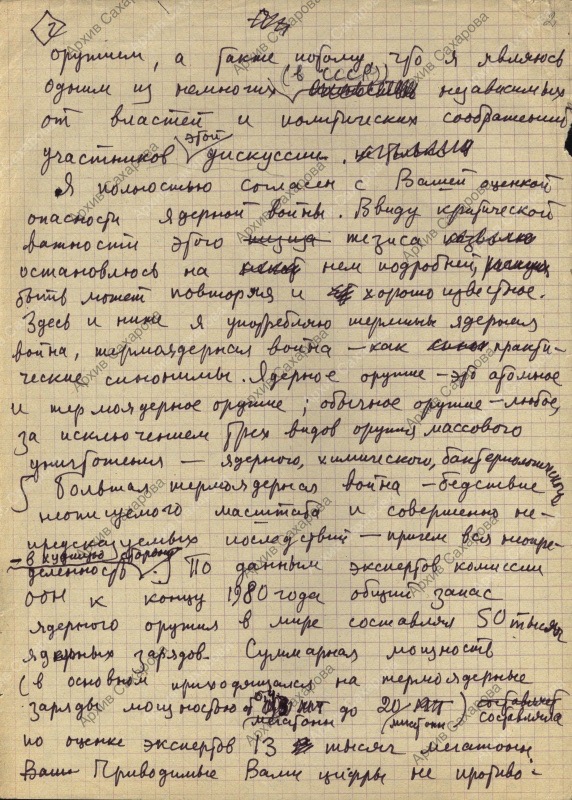 2
оружием, а также потому, что я являюсь
(в СССР)
одним из немногих независимых
от властей и политических соображений
этой
участников дискуссии.
Я полностью согласен с Вашей оценкой
опасности ядерной войны. Ввиду критической
важности этого тезиса
остановлюсь на нем подробней,
быть может повторяя и хорошо известное.
Здесь и ниже я употребляю термины ядерная
война, термоядерная война – как практи-
ческие синонимы. Ядерное оружие – это атомное
и термоядерное оружие; обычное оружие – любое,
за исключением трех видов оружия массового
уничтожения – ядерного, химического, бактериологического
Большая термоядерная война – бедствие
неописуемого масштаба и совершенно не-
предсказуемых последствий – причем вся неопре-
– в худшую сторону
деленность По данным экспертов комиссии
ООН к концу 1980 года общий запас
ядерного оружия в мире составлял 50 тысяч
ядерных зарядов. Суммарная мощность
(в основном приходящаяся на термоядерные
заряды мощностью от до 20
мегатонн мегатонн) составляла
по оценке экспертов 13 тысяч мегатонн
Приводимые Вами цифры не противо-
Архив Сахарова